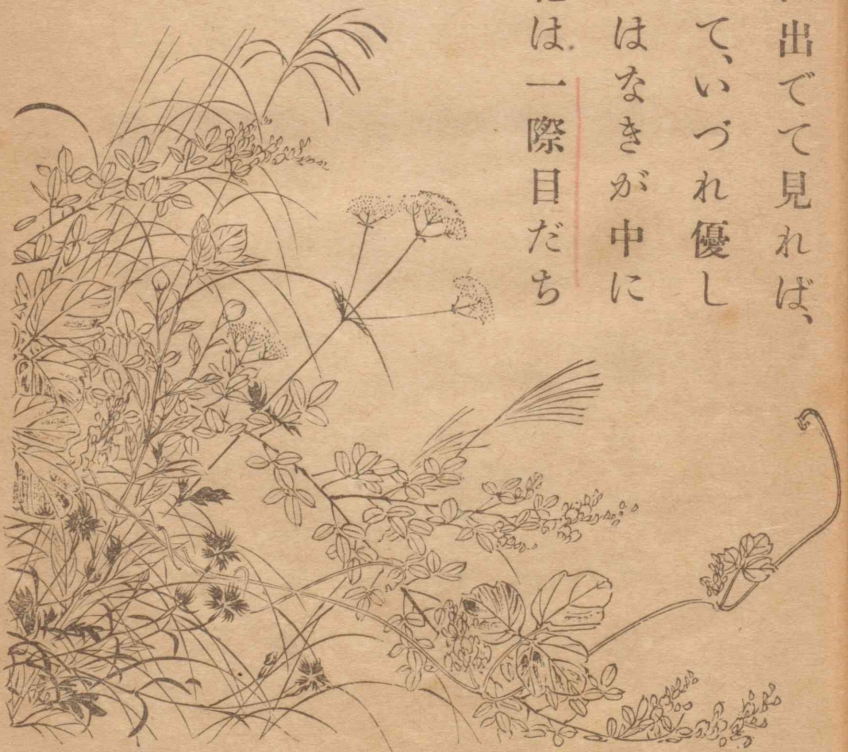 出でて見れば、
て、いづれ優し
はなきが中に
は一際目だち